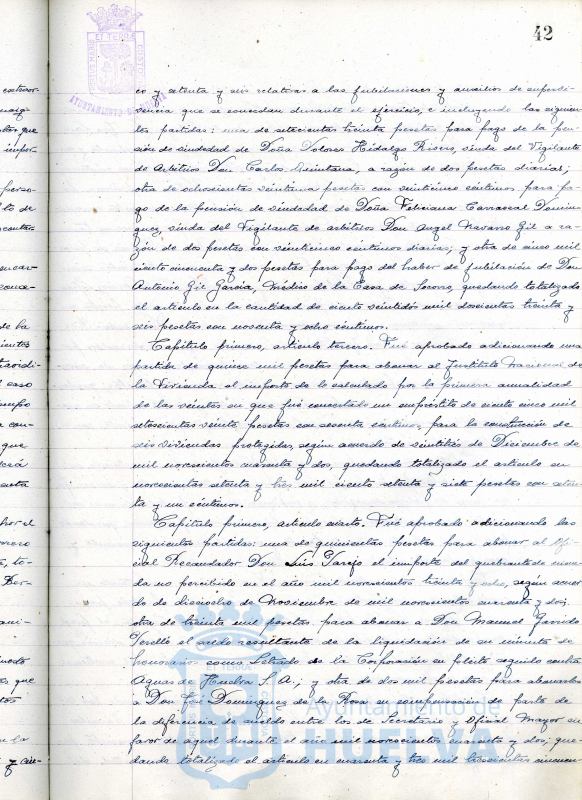 42
co y setenta y seis relativas a las jubilaciones y auxilios de supervi-
vencia que se concedan durante el ejercicio, e incluyendo las siguien-
tes partidas: una de setecientas treinta pesetas para pago de la pen-
sión de viudedad de Doña Dolores Hidalgo Rivero, viuda del Vigilante
de Arbitrios Don Carlos Quintana, a razón de dos pesetas diarias;
otra de ochocientas veintiuna pesetas con veinticinco céntimos para pa-
go de la pensión de viudedad de Doña Feliciana Carrascal Domín-
guez, viuda del Vigilante de arbitrios Don Angel Navarro Gil a ra-
zón de dos pesetas con veinticinco céntimos diarias; y otra de cinco mil
ciento cincuenta y dos pesetas para pago del haber de jubilación de Don
Antonio Gil García, Médico de la Casa de Socorro, quedando totalizado
el artículo en la cantidad de ciento veintidós mil doscientas treinta y
seis pesetas con noventa y ocho céntimos.
Capítulo primero, artículo tercero. Fué aprobado adicionando una
partida de quince mil pesetas para abonar al Instituto Nacional de
la Vivienda el importe de lo calculado por la primera anualidad
de las veintes en que fué concertado un empréstito de ciento cinco mil
setecientas veinte pesetas con sesenta céntimos, para la construcción de
seis viviendas protegidas, según acuerdo de veintitrés de Diciembre de
mil novecientos cuarenta y dos, quedando totalizado el artículo en
novecientas setenta y tres mil ciento setenta y siete pesetas con seten-
ta y un céntimos.
Capítulo primero, artículo cuarto. Fué aprobado adicionando las
siguientes partidas: una de quinientas pesetas para abonar al Ofi-
cial Recaudador Don Luis Garejo el importe del quebranto de mone-
da no percibido en el año mil novecientos treinta y ocho, según acuer-
do de dieciocho de Noviembre de mil novecientos cuarenta y dos;
otra de treinta mil pesetas para abonar a Don Manuel Garrido
Perelló el saldo resultante de la liquidación de su minuta de
honorarios como Letrado de la Corporación en pleito seguido contra
Aguas de Huelva S.A.; y otra de dos mil pesetas para abonarlas
a Don José Domínguez de la Rosa en compensación de parte de
la diferencia de sueldo entre los de Secretario y Oficial Mayor en
favor de aquel durante el año mil novecientos cuarenta y dos; que-
dando totalizado el artículo en cuarenta y tres mil trescientas cincuen-
Ayuntamiento de
HUELVA